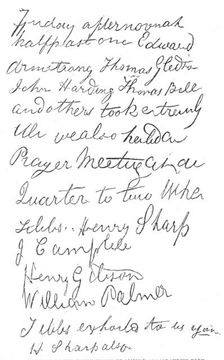 Friday afternoon at
half past one Edward
Armstrong Thomas Gledson
John Harding Thomas Bell
and others took extremely
ill we also held a
Prayer Meeting at a
Quarter to two When
Tibbs.. Henry Sharp
J Campbell
Henry Gibson
William Palmer
Tibbs exhorted to us again
H Sharp also